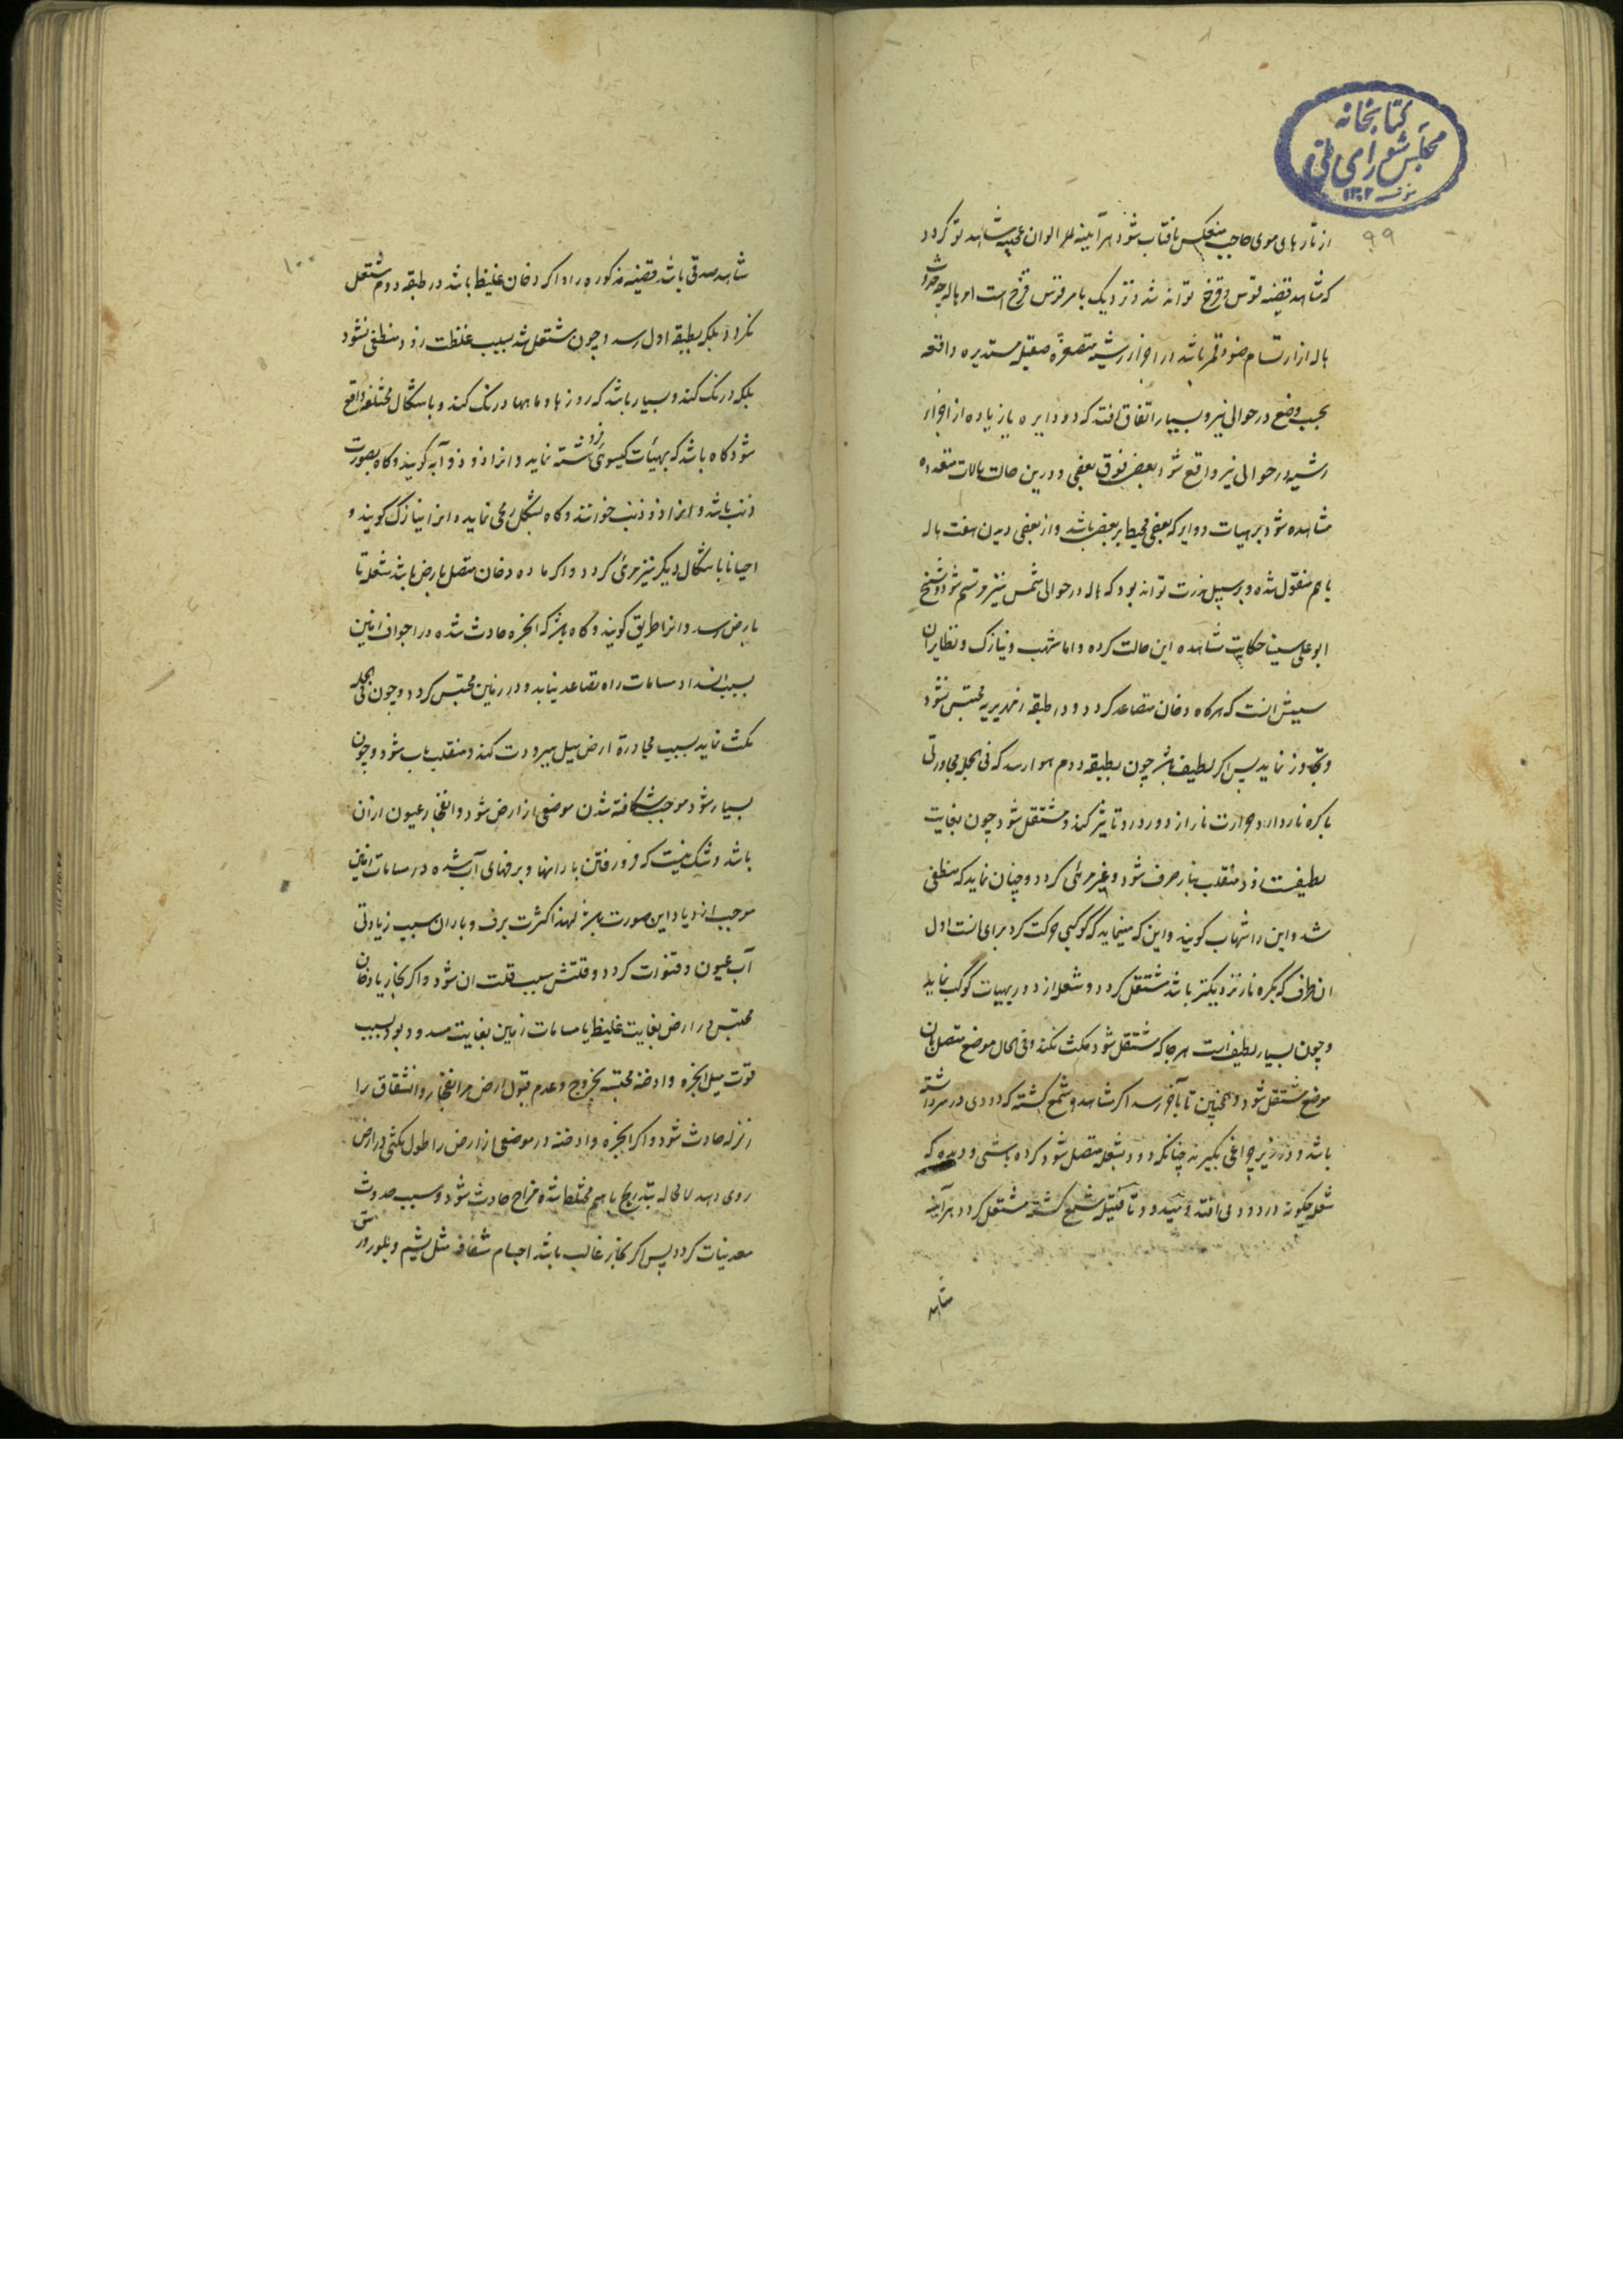 کتابخانه
مجلس شورای ملی
۱۳۰۲
۹۹
از تارهای موی حاجب منعکس بافتاب شود هرآینه الوان عجیبه مشاهد تو گردد
که شاهد قضیه قوس و قزح تواند شد و نزدیک بامر قوس قزح است امر هاله چه حدوث
هاله از ارتسام ضوء قمر باشد در اجزاء رشیه متصغره صقیله مستدیره واقعه
بحسب وضع در حوالی نیر و بسیار اتفاق افتد که دو دایره یا زیاده از اجزاء
رشیه در حوالی نیر واقع شود بعضی فوق بعضی و درین حالت هالات متعدده
مشاهده شود بر هیات دوایر که بعضی محیط بر بعضی باشد و از بعضی دیدن هفت هاله
با هم منقول شده و بر سبیل ندرت تواند بود که هاله در حوالی شمس نیز مرتسم شود و شیخ
ابو علی سینا حکایت مشاهده این حالت کرده و اما شهب و نیازک و نظایر آن
سببش آنست که هرکاه دخان متصاعد کردد و در طبقه زمهریریه محتبس نشود
و تجاوز نماید پس اکر لطیف باشد چون بطبقه دوم هوا رسد که فی الجمله مجاورتی
با کره نار دارد و حرارت نار از دور درو تاثیر کند و مشتعل شود چون بغایت
لطیفست زود منقلب بنار صرف شود و غیر مرئی کردد و چنان نماید که منطفی
شد و این را شهاب کویند و این که مینماید که کوکبی حرکت کرد برای انست اول
ان طرف که بکره نار نزدیکتر باشد مشتعل کردد و شعله از دور بهیات کوکب نماید
و چون بسیار لطیف است هر جا که مشتعل شود مکث نکند و فی الحال موضع متصل بان
موضع مشتعل شود و همچنین تا بآخر رسد اکر مشاهد تو شمع کشته که دودی در سر داشته
باشد و در زیر چراغی بگیرند چنانکه دود بشعله متصل شود کرده باشی و دیده که
شعله چکونه در دود می افتد و میدود تا فتیله شمع کشته مشتعل کردد هرآینه
شاهد
۱۰۰
شاهد صدقی باشد قضیه مذکوره را و اکر دخان غلیظ باشد در طبقه دوم مشتعل
نکردد بلکه بطبقه اول رسد و چون مشتعل شد بسبب غلظت زود منطفی نشود
بلکه درنک کند و بسیار باشد که روزها و ماهها درنک کند و باشکال مختلفه واقع
شود کاه باشد که بهیأت کیسوی فروهشته نماید و انرا ذو ذوابه کویند و کاه بصورت
ذنب باشد و انرا ذو ذنب خوانند و کاه بشکل رمحی نماید و انرا نیازک کویند و
احیانا باشکال دیکر نیز مرئی کردد و اکر ماده دخان متصل بارض باشد شعله تا
بارض رسد و انرا طریق کویند و کاه باشد که ابخره حادث شده در اجواف زمین
بسبب انسداد مسامات راه تصاعد نیابد و در زمین محتبس کردد و چون فی الجمله
مکث نماید بسبب مجاورة ارض میل ببرودت کند و منقلب بآب شود و چون
بسیار شود موجب شکافته شدن موضعی از ارض شود و انفجار عیون از ان
باشد و شک نیست که فرو رفتن بارانها و برفهای آب شده در مسامات زمین
موجب ازدیاد این صورت باشد لهذا کثرت برف و باران سبب زیادتی
آب عیون و قنوات کردد و قلتش سبب قلت ان شود و اکر بخار یا دخان
محتبس در ارض بغایت غلیظ یا مسامات زمین بغایت مسدود بود بسبب
قوت میل ابخره و ادخنه محتبسه بخروج و عدم قبول ارض مر انفجار و انشقاق را
زلزله حادث شود و اکر ابخره و ادخنه در موضعی از ارض را طول مکثی در ارض
روی دهد لا محاله بتدریج با هم مختلط شده مزاج حادث شود و سبب حدوث
معدنیات کردد پس اکر بخار غالب باشد اجسام شفاف مثل یشم و بلور و